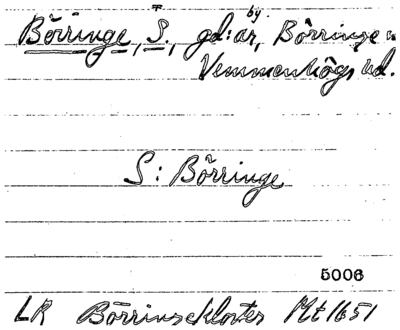 by
Börringe, S., gd:ar, Börringe
Vemmenhögs hd.
S: Börringe
5006
LR Börringekloster Mt 1651